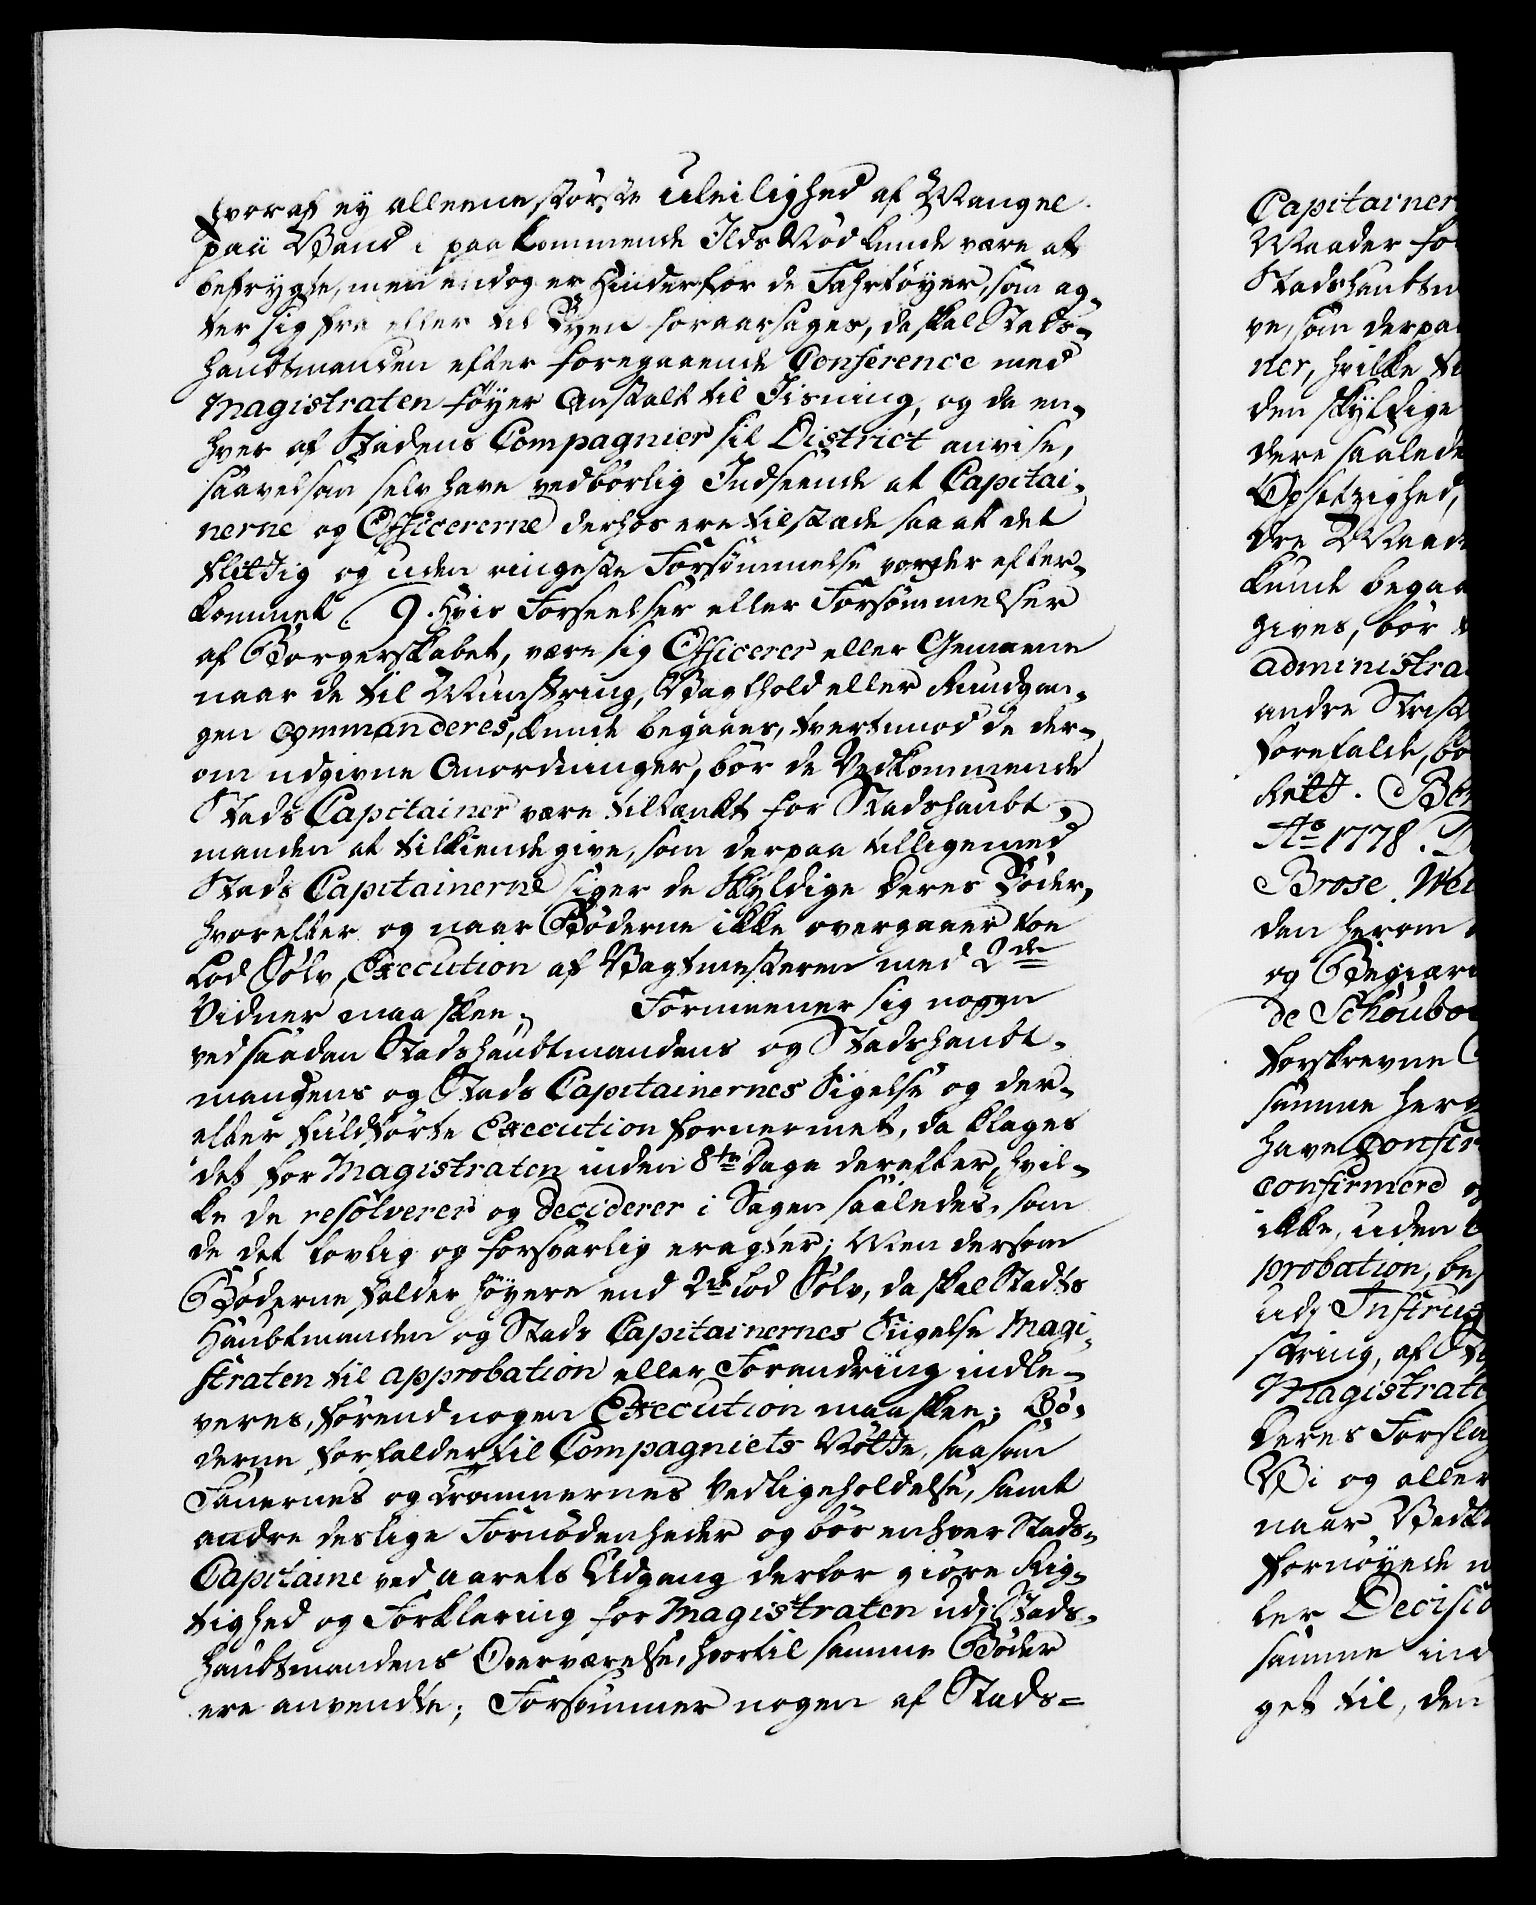 hvoraf ey alleene störste Uleilighed af Mangel
paa Vand i paakommende Ilds Nöd kunde være at
befrygte, men endog er Hinder for de Fahrtöyer, som ag-
ter sig fra eller til Byen foraarsages, da skal Stads-
haubtmanden efter foregaaende Conference med
Magistraten föyer Anstalt til Iisning, og da en-
hver af Stadens Compagnier sit District anvise,
saavelsom selv have vedbörlig Indseende at Capitai-
nerne og Officererne derhos ere tilstæde saa at det
flittig og uden ringeste Forsömmelse vorder efter-
kommet. 9. Hvis Forseelser eller Forsömmelser
af Borgerskabet, være sig Officerer eller Gemeene
naar de til Munstring, Vagthold eller Rundgan-
gen commanderes, kunde begaaes, tvertimod de der-
om udgivne Anordninger, bör de Vedkommende
Stads Capitainer være tiltænkt for Stadshaubt-
manden at tilkiendegive, som derpaa tilligemed
Stads Capitainerne siger de Skyldige deres Böder,
hvorefter og naar Böderne ikke overgaaer toe
Lod Sölv, Execution af Vagtmesteren med 2de
Vidner maa skee. Formeener sig nogen
ved saadan Stadshaubtmandens og Stadshaubt-
mandens og Stads Capitainernes Sigelse og der-
efter fuldförte Execution fornermet, da klages
det for Magistraten inden 8te Dage derefter, hvil-
ke da resolverer og deciderer i Sagen saaledes, som
de det lovlig og forsvarlig eragter; Men dersom
Böderne falder höyere end 2de Lod Sölv, da skal Stadts
Haubtmanden og Stads Capitainernes Siigelse Magi-
straten til approbation eller Forandring indle-
veres, förend nogen Execution maa skee; Bö-
derne forfalder til Compagniets Nötte, saasom
Fanernes og Trommernes Vedligeholdelse, samt
andre deslige Fornödenheder og bör enhver Stads-
Capitaine ved Aarets Udgang derfor giöre Rig-
tighed og Forklaring for Magistraten udi Stads-
haubtmandens Overværelse, hvortil samme Böder
ere anvendte; Forsömmer nogen af Stads=
Capitainer
Maader for
Stadshaubtm
ve, som derpaa
ner, hvilke
den skyldige
dere saalede
Opsetzighed,
dre Maade
kunde begaa
gives, bör
administra
andre Strid
forefalde, bö
Rett.
Ao 1778.
Brose. We
den herom
og Begiæri
de Schoubo
forskrevne
samme her
have confir
confirmere
ikke, uden
probation, be
udi Instrux
string, af
Magistrate
deres Forslag
Vi og aller
naar Vedk
fornöyede
ler Decisio
samme ind
get til, den